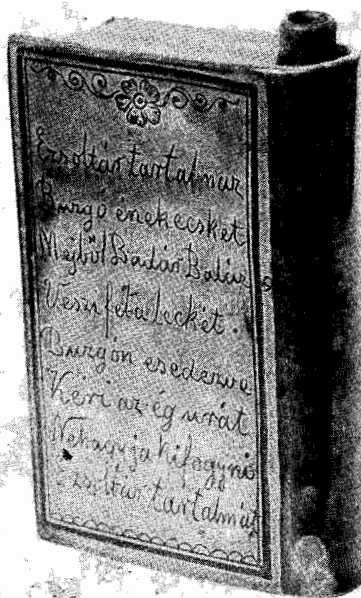 Ezsoltár tartalmaz
Buzgó énekecsket
Mejből Badár Balázs
Veszi fita leckét.
Buzgón esedezve
Kéri az ég urát
Nehagyja kifogyni
Ezsoltár tartalmát